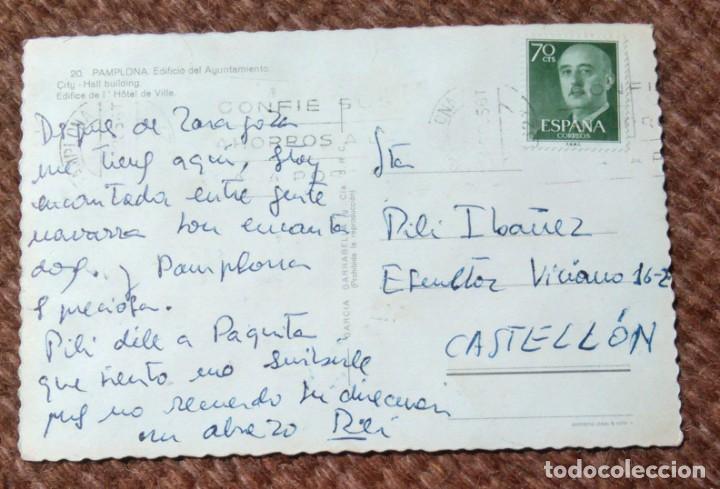 20. PAMPLONA. Edificio del Ayuntamiento.
City - Hall building.
Edifice de l' Hôtel de Ville.
CONFIE SU
AHORROS A
70
CTS
ESPAÑA
CORREOS
Despues de Zaragoza
me tienes aqui, estoy
encantada entre gente
navarra son encanta
dores. y Pamplona
es preciosa.
Pili dile a Paquita
que siento no escribirle
pues no recuerdo su direccion
un abrazo Pili
GARCIA GARRABELLA Y Cía
(Prohibida la reproducción)
Sta
Pili Ibañez
Escultor Viciano 16-2
CASTELLÓN
todocoleccion
todocoleccion.net